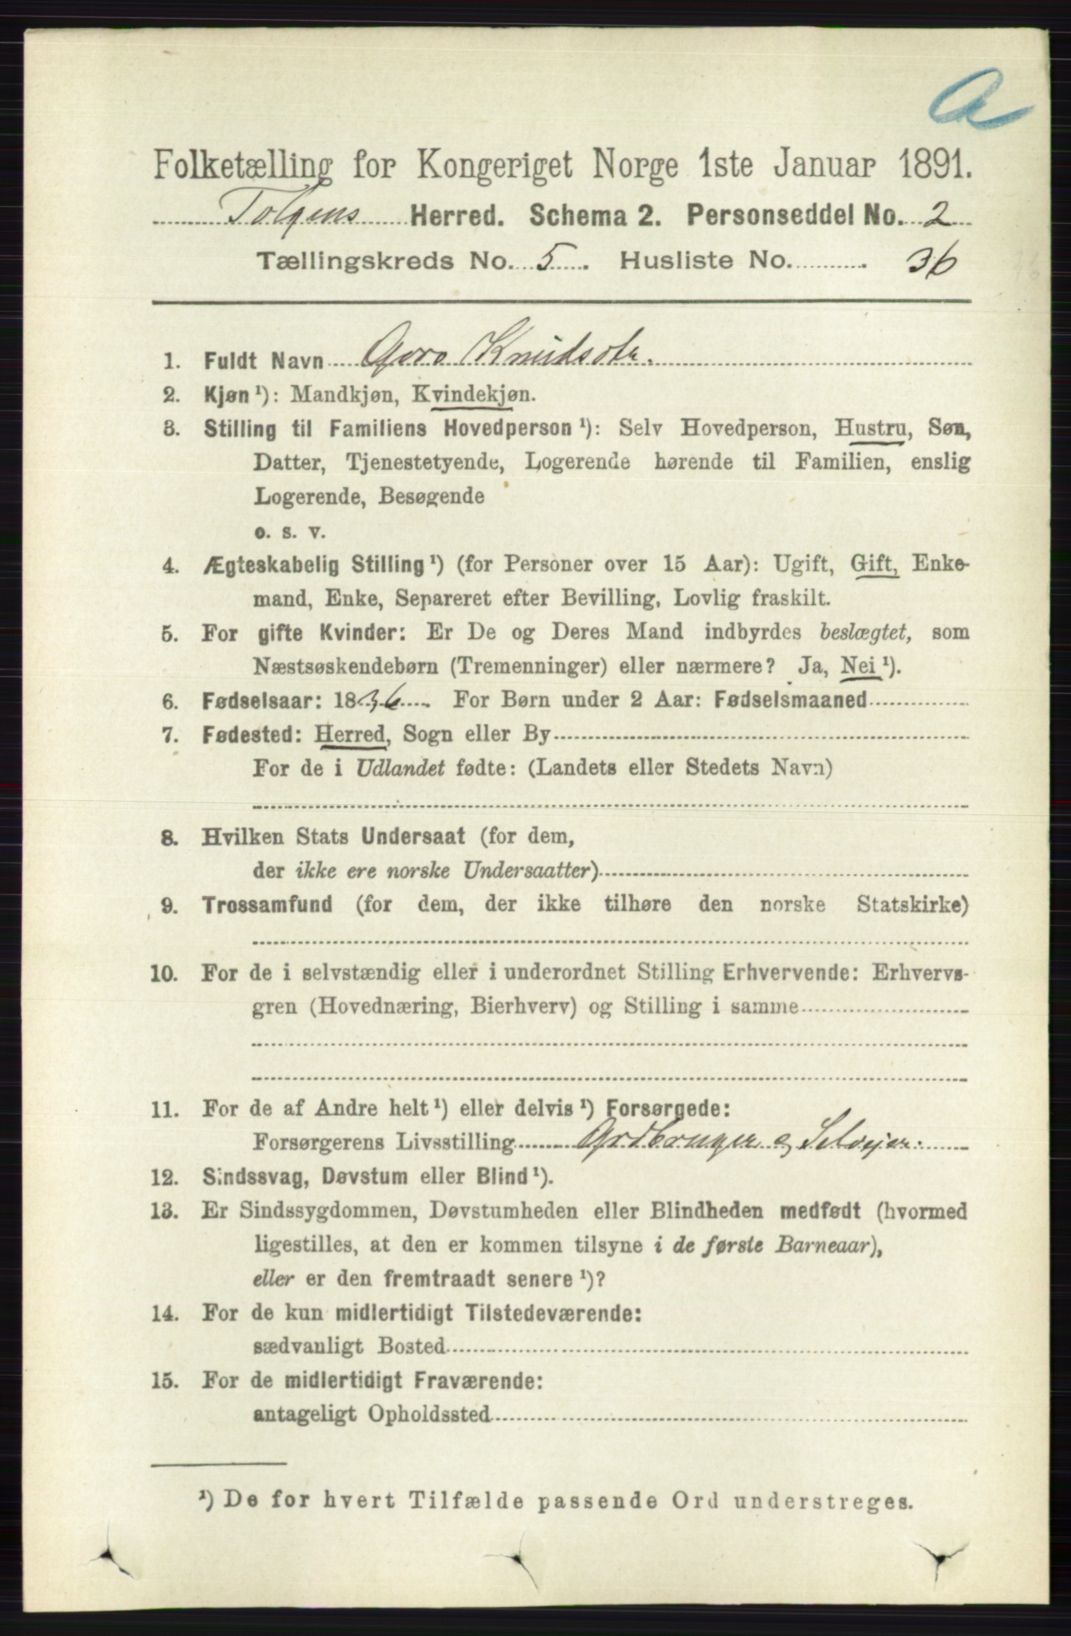 a
Folketælling for Kongeriget Norge 1ste Januar 1891.
Tolgens Herred. Schema 2. Personseddel No. 2
Tællingskreds No. 5. Husliste No. 36
1. Fuldt Navn Goro Knudsdtr.
2. Kjøn ¹): Mandkjøn, Kvindekjøn.
3. Stilling til Familiens Hovedperson ¹): Selv Hovedperson, Hustru, Søn,
Datter, Tjenestetyende, Logerende hørende til Familien, enslig
Logerende, Besøgende
o. s. v.
4. Ægteskabelig Stilling ¹) (for Personer over 15 Aar): Ugift, Gift, Enke-
mand, Enke, Separeret efter Bevilling, Lovlig fraskilt.
5. For gifte Kvinder: Er De og Deres Mand indbyrdes beslægtet, som
Næstsøskendebørn (Tremenninger) eller nærmere? Ja, Nei ¹).
6. Fødselsaar: 1836. For Børn under 2 Aar: Fødselsmaaned
7. Fødested: Herred, Sogn eller By
For de i Udlandet fødte: (Landets eller Stedets Navn)
8. Hvilken Stats Undersaat (for dem,
der ikke ere norske Undersaatter)
9. Trossamfund (for dem, der ikke tilhøre den norske Statskirke)
10. For de i selvstændig eller i underordnet Stilling Erhvervende: Erhvervs-
gren (Hovednæring, Bierhverv) og Stilling i samme
11. For de af Andre helt ¹) eller delvis ¹) Forsørgede:
Forsørgerens Livsstilling Grdbruger og Selveier.
12. Sindssvag, Døvstum eller Blind ¹).
13. Er Sindssygdommen, Døvstumheden eller Blindheden medfødt (hvormed
ligestilles, at den er kommen tilsyne i de første Barneaar),
eller er den fremtraadt senere ¹)?
14. For de kun midlertidigt Tilstedeværende:
sædvanligt Bosted
15. For de midlertidigt Fraværende:
antageligt Opholdssted
¹) De for hvert Tilfælde passende Ord understreges.